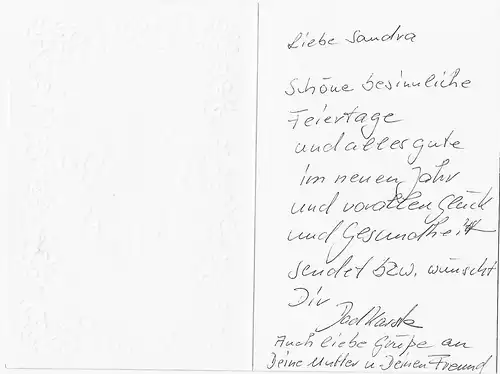 Liebe Sandra
Schöne besinnliche
Feiertage
und alles gute
im neuen Jahr
und vorallen Glück
und Gesundheit
sendet bzw. wünscht
Dir
Auch liebe Grüße an
Deine Mutter u. Deinen Freund